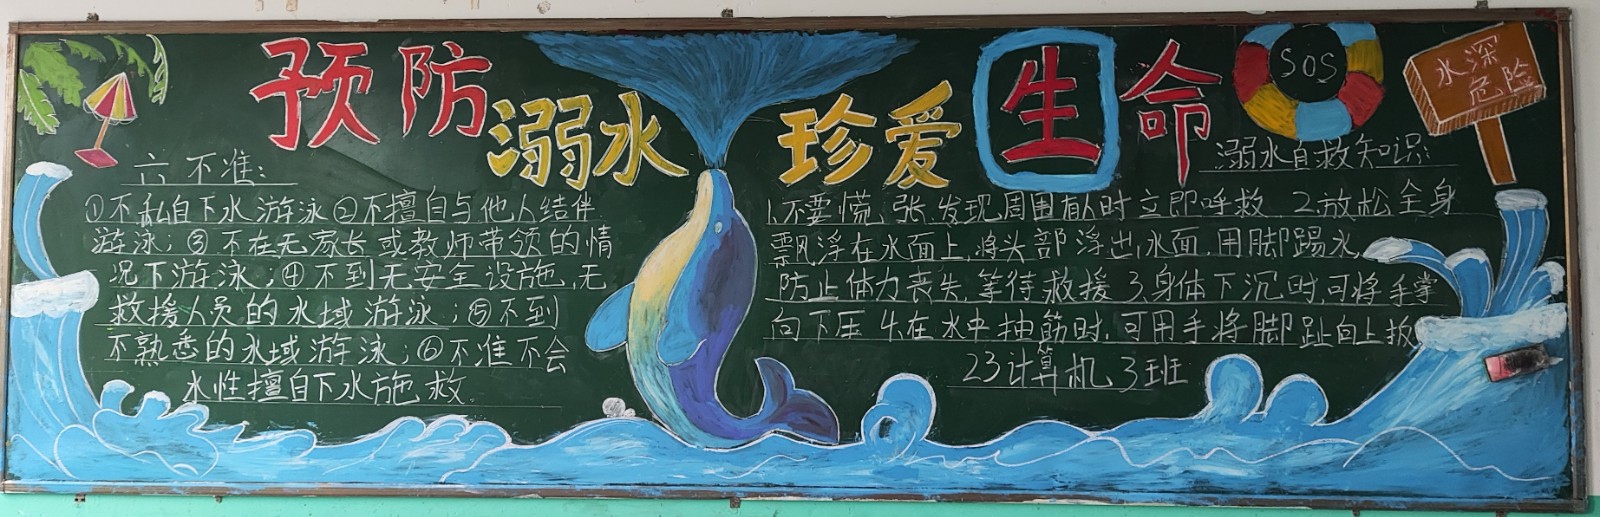 预防溺水 珍爱生命
SOS
水深
危险
六不准:
①不私自下水游泳②不擅自与他人结伴
游泳;③不在无家长或教师带领的情
况下游泳;④不到无安全设施,无
救援人员的水域游泳;⑤不到
不熟悉的水域游泳;⑥不准不会
水性擅自下水施救.
溺水自救知识:
1.不要慌、张、发现周围有人时立即呼救 2.放松全身
飘浮在水面上,将头部浮出水面,用脚踢水,
防止体力丧失,等待救援 3.身体下沉时,可将手掌
向下压 4.在水中抽筋时,可用手将脚趾向上扳
23计算机3班